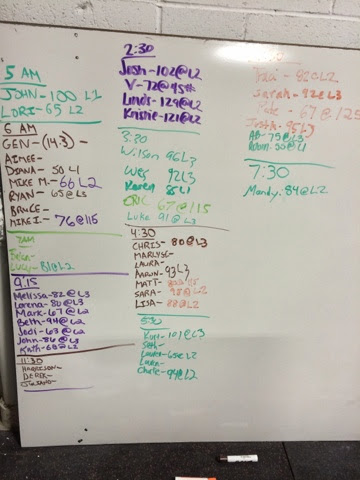 5 AM
JOHN-100 L1
LORI-65 L2
6 AM
GEN-(14:3)-
AIMEE-
DIANA-50 L1
MIKE M-66 L2
RYAN-65@L3
BRUCE-
MIKE I-76@115
7AM
Brian-
Lucy-81@L2
9:15
Melissa-82@L3
Lorena-80@L3
Mark-67@L2
Beth-94@L2
Jodi-63@L2
John-86@L3
Keith-68@L2
11:30
HARRISON-
DEREK-
2:30
Josh-102@L2
V-72@95#
Linds-129@L2
Kristie-121@L2
3:30
Wilson 96L3
Wes 92L3
Karen 85L1
ERIC 67@115
Luke 91@L3
4:30
CHRIS-80@L3
MARLYSE-
LAURA-
AARON-93L3
MATT-
SARA-98@L2
LISA-88@L2
5:30
Kurt-101@L3
Seth-
Laura-
Charlie-94@L2
82@L2
Sarah-92@L3
67@125
Justin-95L3
AB-75@L3
Adam-50@L1
7:30
Mandy-84@L2